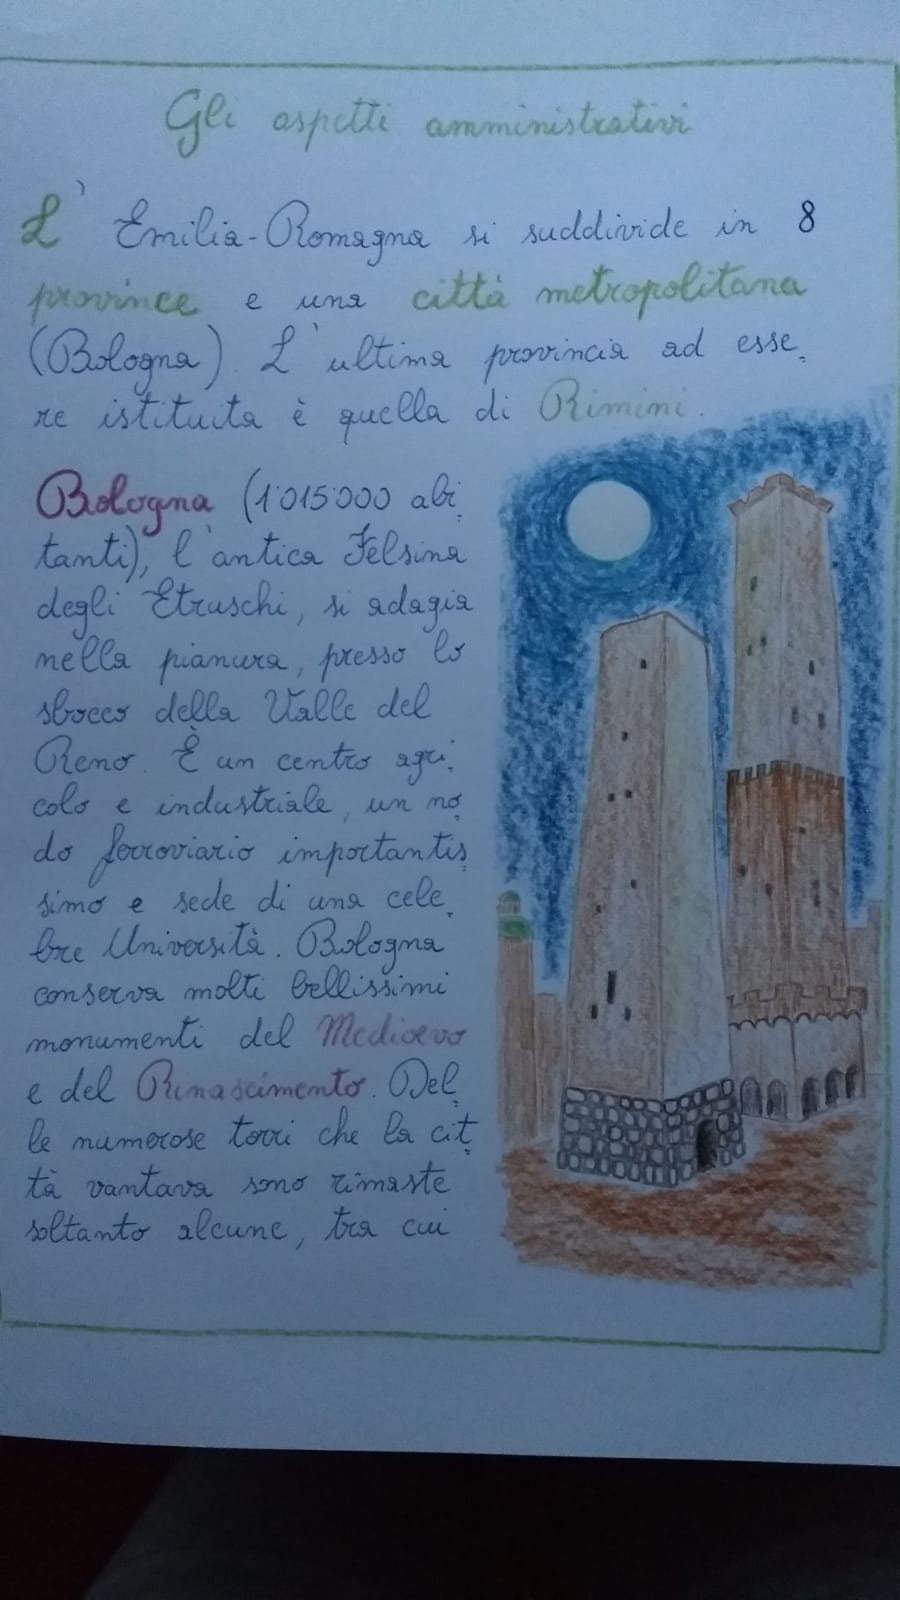 Gli aspetti amministrativi
L' Emilia-Romagna si suddivide in 8
province e una città metropolitana
(Bologna). L'ultima provincia ad esse
re istituita è quella di Rimini.
Bologna (1'015'000 abi
tanti), l'antica Felsina
degli Etruschi, si adagia
nella pianura, presso lo
sbocco della Valle del
Reno. È un centro agri
colo e industriale, un no
do ferroviario importantis
simo e sede di una cele
bre Università. Bologna
conserva molti bellissimi
monumenti del Medioevo
e del Rinascimento. Del
le numerose torri che la cit
tà vantava sono rimaste
soltanto alcune, tra cui